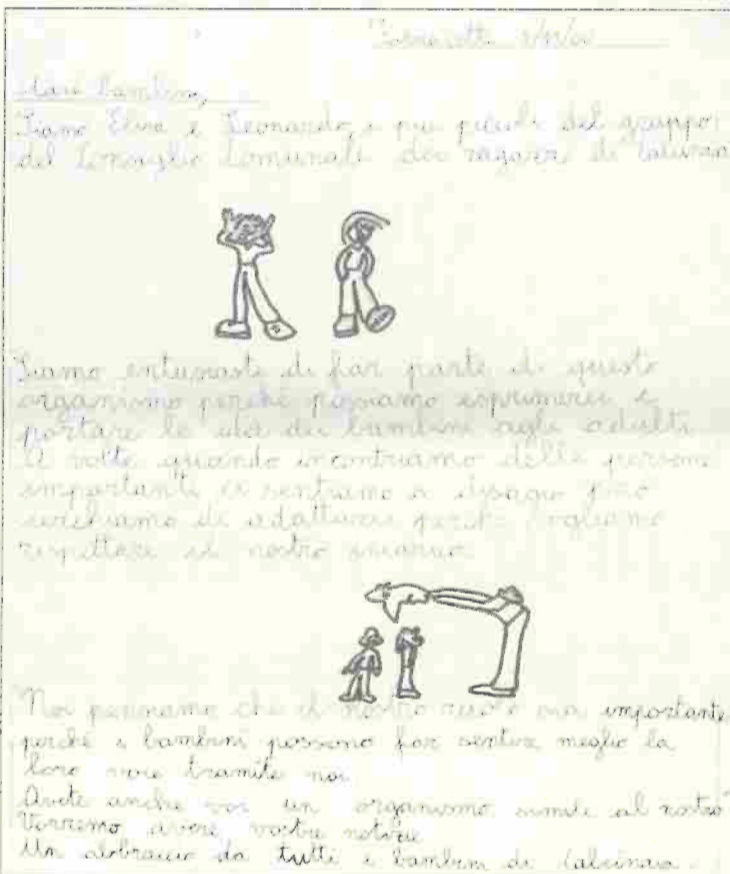 Cari bambini,
Siamo Elisa e Leonardo, i più piccoli del gruppo
del Consiglio Comunale dei ragazzi di Calcinaia
Siamo entusiasti di far parte di questo
organismo perché possiamo esprimerci e
portare le idee dei bambini agli adulti
A volte quando incontriamo delle persone
importanti ci sentiamo a disagio però
cerchiamo di adattarci perché vogliamo
rispettare il nostro incarico.
Noi pensiamo che il nostro ruolo sia importante,
perché i bambini possono far sentire meglio la
loro voce tramite noi.
Avete anche voi un organismo simile al nostro?
Vorremo avere vostre notizie
Un abbraccio da tutti i bambini di Calcinaia.